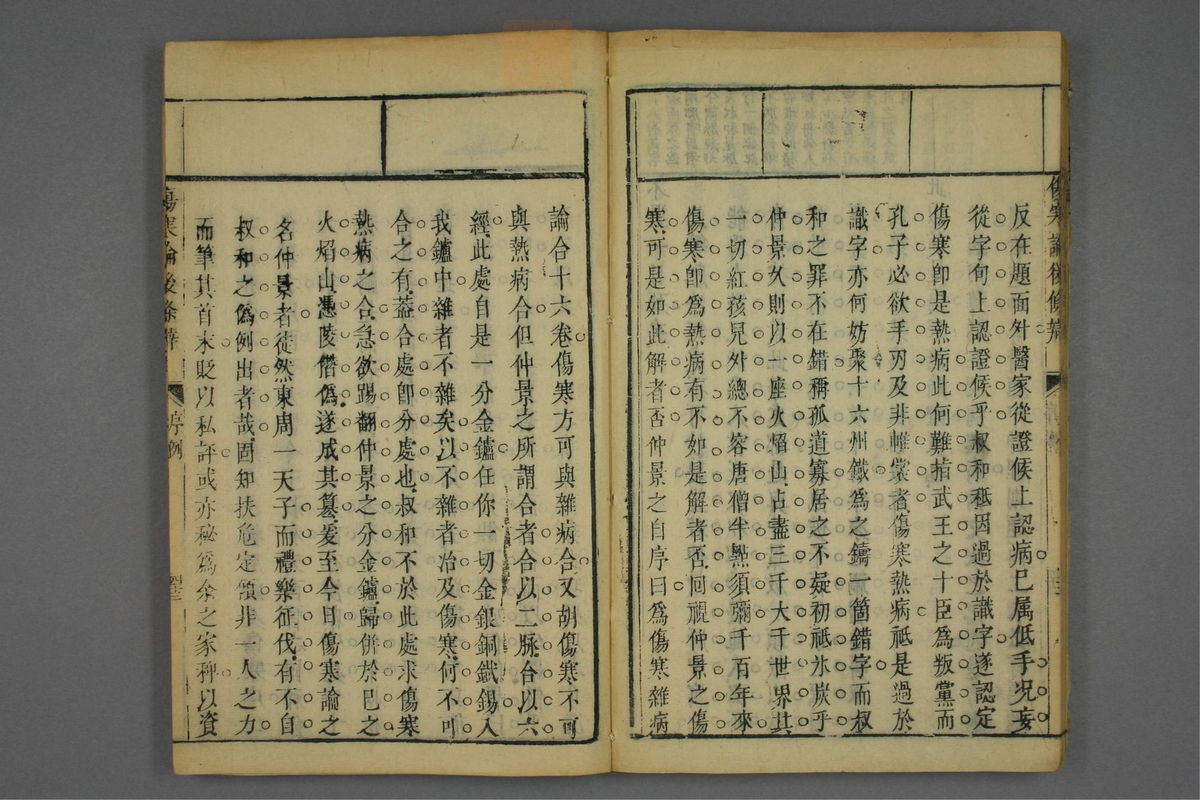 反在題面外醫家從證候上認病已屬低手况妄
從字句上認證候乎叔和秪因過於識字遂認定
傷寒卽是熱病此何難指武王之十臣為叛黨而
孔子必欲手刃及非帷裳者傷寒熱病秪是過於
識字亦何妨聚十六州鐵為之鑄一箇錯字而叔
和之罪不在錯稱孤道寡居之不疑初秪氷炭乎
仲景久則以一座火焰山占盡三千大千世界其
一切紅孩兒外總不容唐僧半㸃須彌千百年來
傷寒卽為熱病有不如是解者否囘視仲景之傷
寒可是如此解者否仲景之自序曰爲傷寒雜病
論合十六卷傷寒方可與雜病合又胡傷寒不可
與熱病合但仲景之所謂合者合以二脉合以六
經此處自是一分金鑪任你一切金銀銅鐵錫入
我鑪中雜者不雜矣以不雜者治及傷寒何不可
合之有葢合處卽分處也叔和不於此處求傷寒
熱病之合急欲踢翻仲景之分金鑪歸併於已之
火焰山憑陵僭偽遂成其簒爰至今日傷寒論之
名仲景者徒然東周一天子而禮樂征伐有不自
叔和之偽例出者哉固知扶危定傾非一人之力
而筆其首末貶以私評或亦秘爲余之家稗以資
傷寒論後條辨
序例